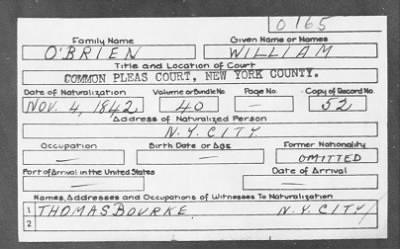 0165
Family Name Given Name or Names
O'BRIEN WILLIAM
Title and Location of Court
COMMON PLEAS COURT, NEW YORK COUNTY.
Date of Naturalization Volume or Bundle No. Page No. Copy of Record No.
NOV. 4, 1842 40 — 52
Address of Naturalized Person
N.Y. CITY
Occupation Birth Date or Age Former Nationality
— — OMITTED
Port of Arrival in the United States Date of Arrival
— —
Names, Addresses and Occupations of Witnesses To Naturalization
1 THOMAS BOURKE N.Y. CITY
2